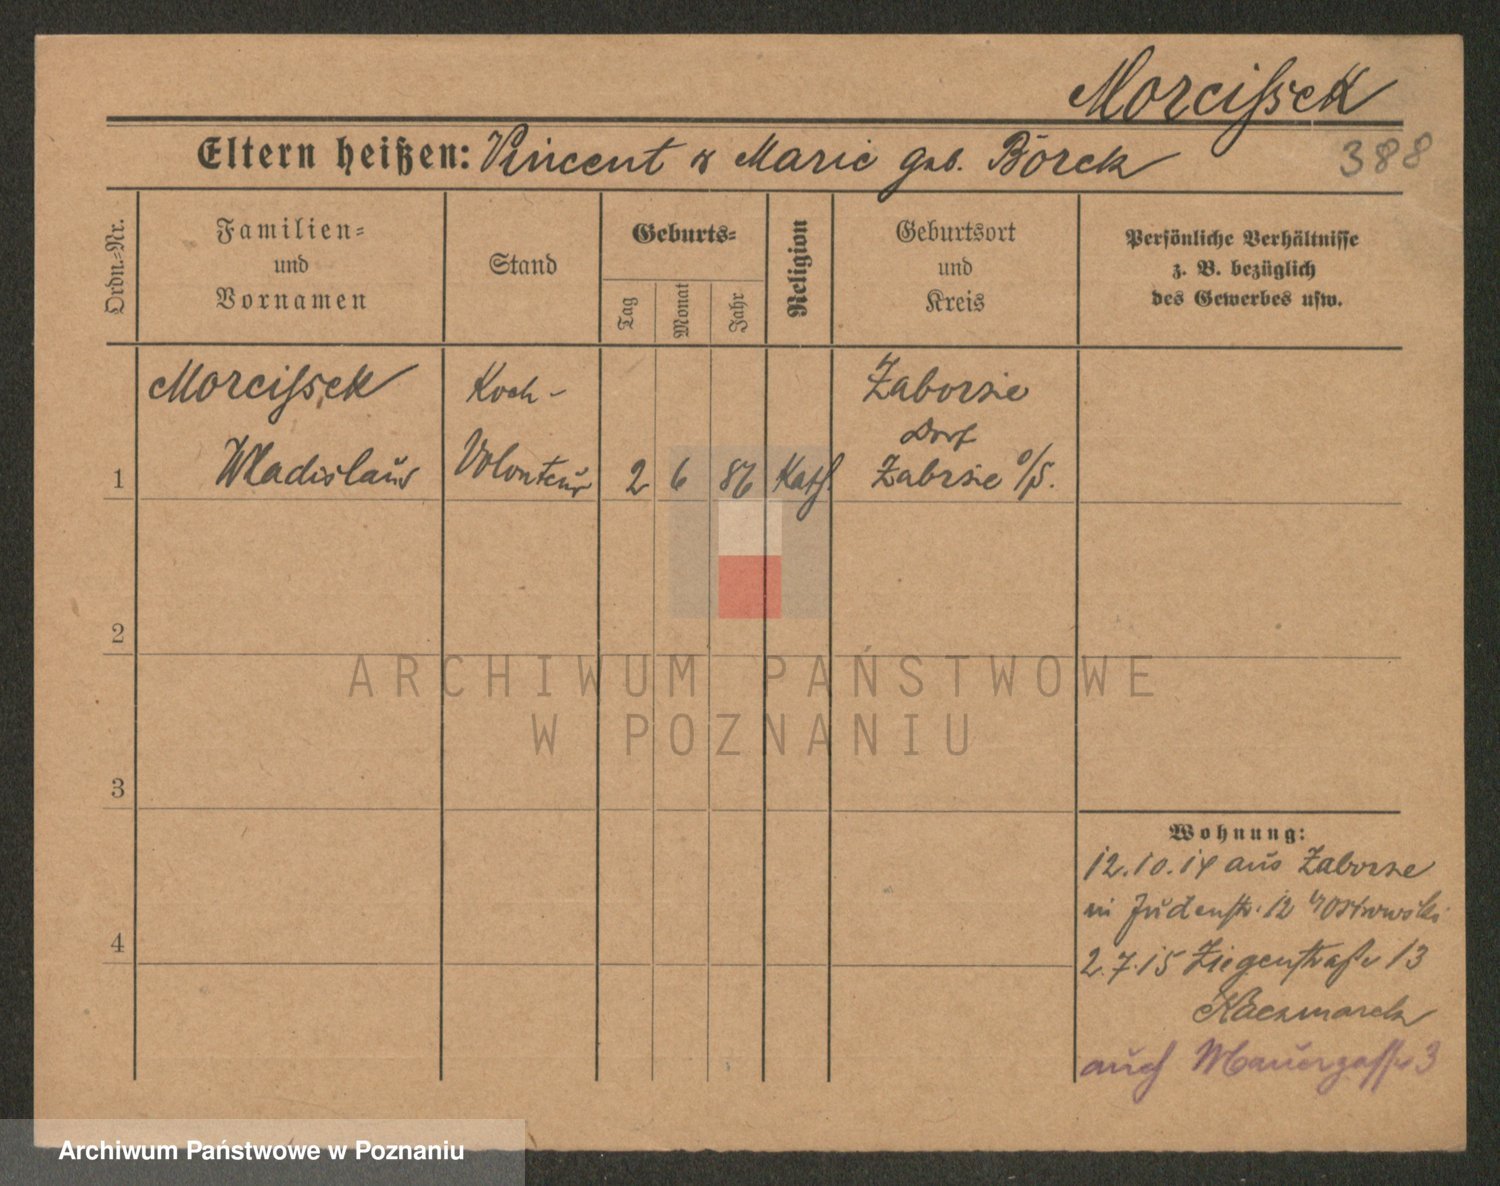 Morcissek
388
Eltern heißen: Vincent & Marie geb. Börck
Ordn.-Nr.
Familien-
und
Vornamen
Stand
Geburts-
Tag
Monat
Jahr
Religion
Geburtsort
und
Kreis
Persönliche Verhältnisse
z. B. bezüglich
des Gewerbes usw.
Morcissek Koch- Zaborsie
Dorf
1 Wladislaus Volonteur 2 6 86 Kath. Zabrsie o/S.
2
3
4
Wohnung:
12.10.14 aus Zaborze
in Judenstr. 12
2.7.15 Ziegenstraße 13
Kaczmarek
auch Mauergasse 3
ARCHIWUM PAŃSTWOWE
W POZNANIU
Archiwum Państwowe w Poznaniu